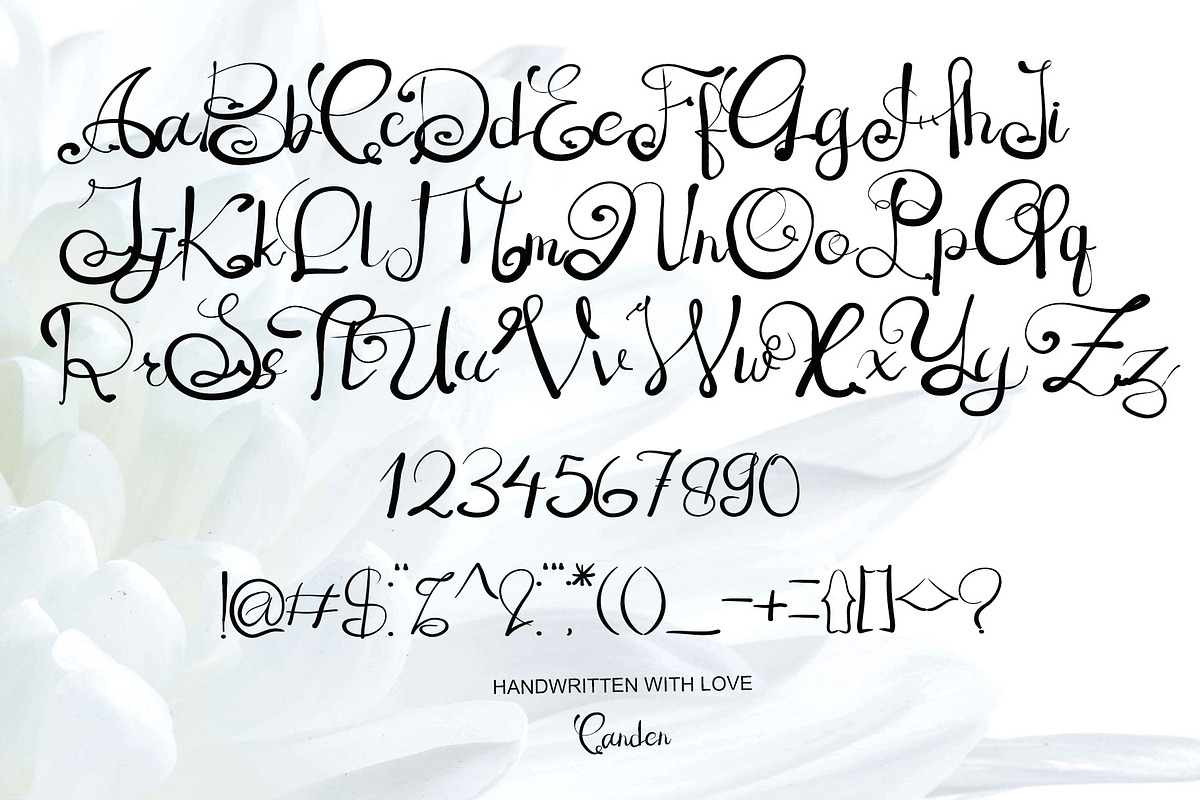 AaBbCcDdEeFfGgHhIi
JjKkLlMmNnOoPpQq
RrSsTtUuVvWwXxYyZz
1234567890
!@#$:"%^&:;"'*()_-+={}[]<>?
HANDWRITTEN WITH LOVE
Canden